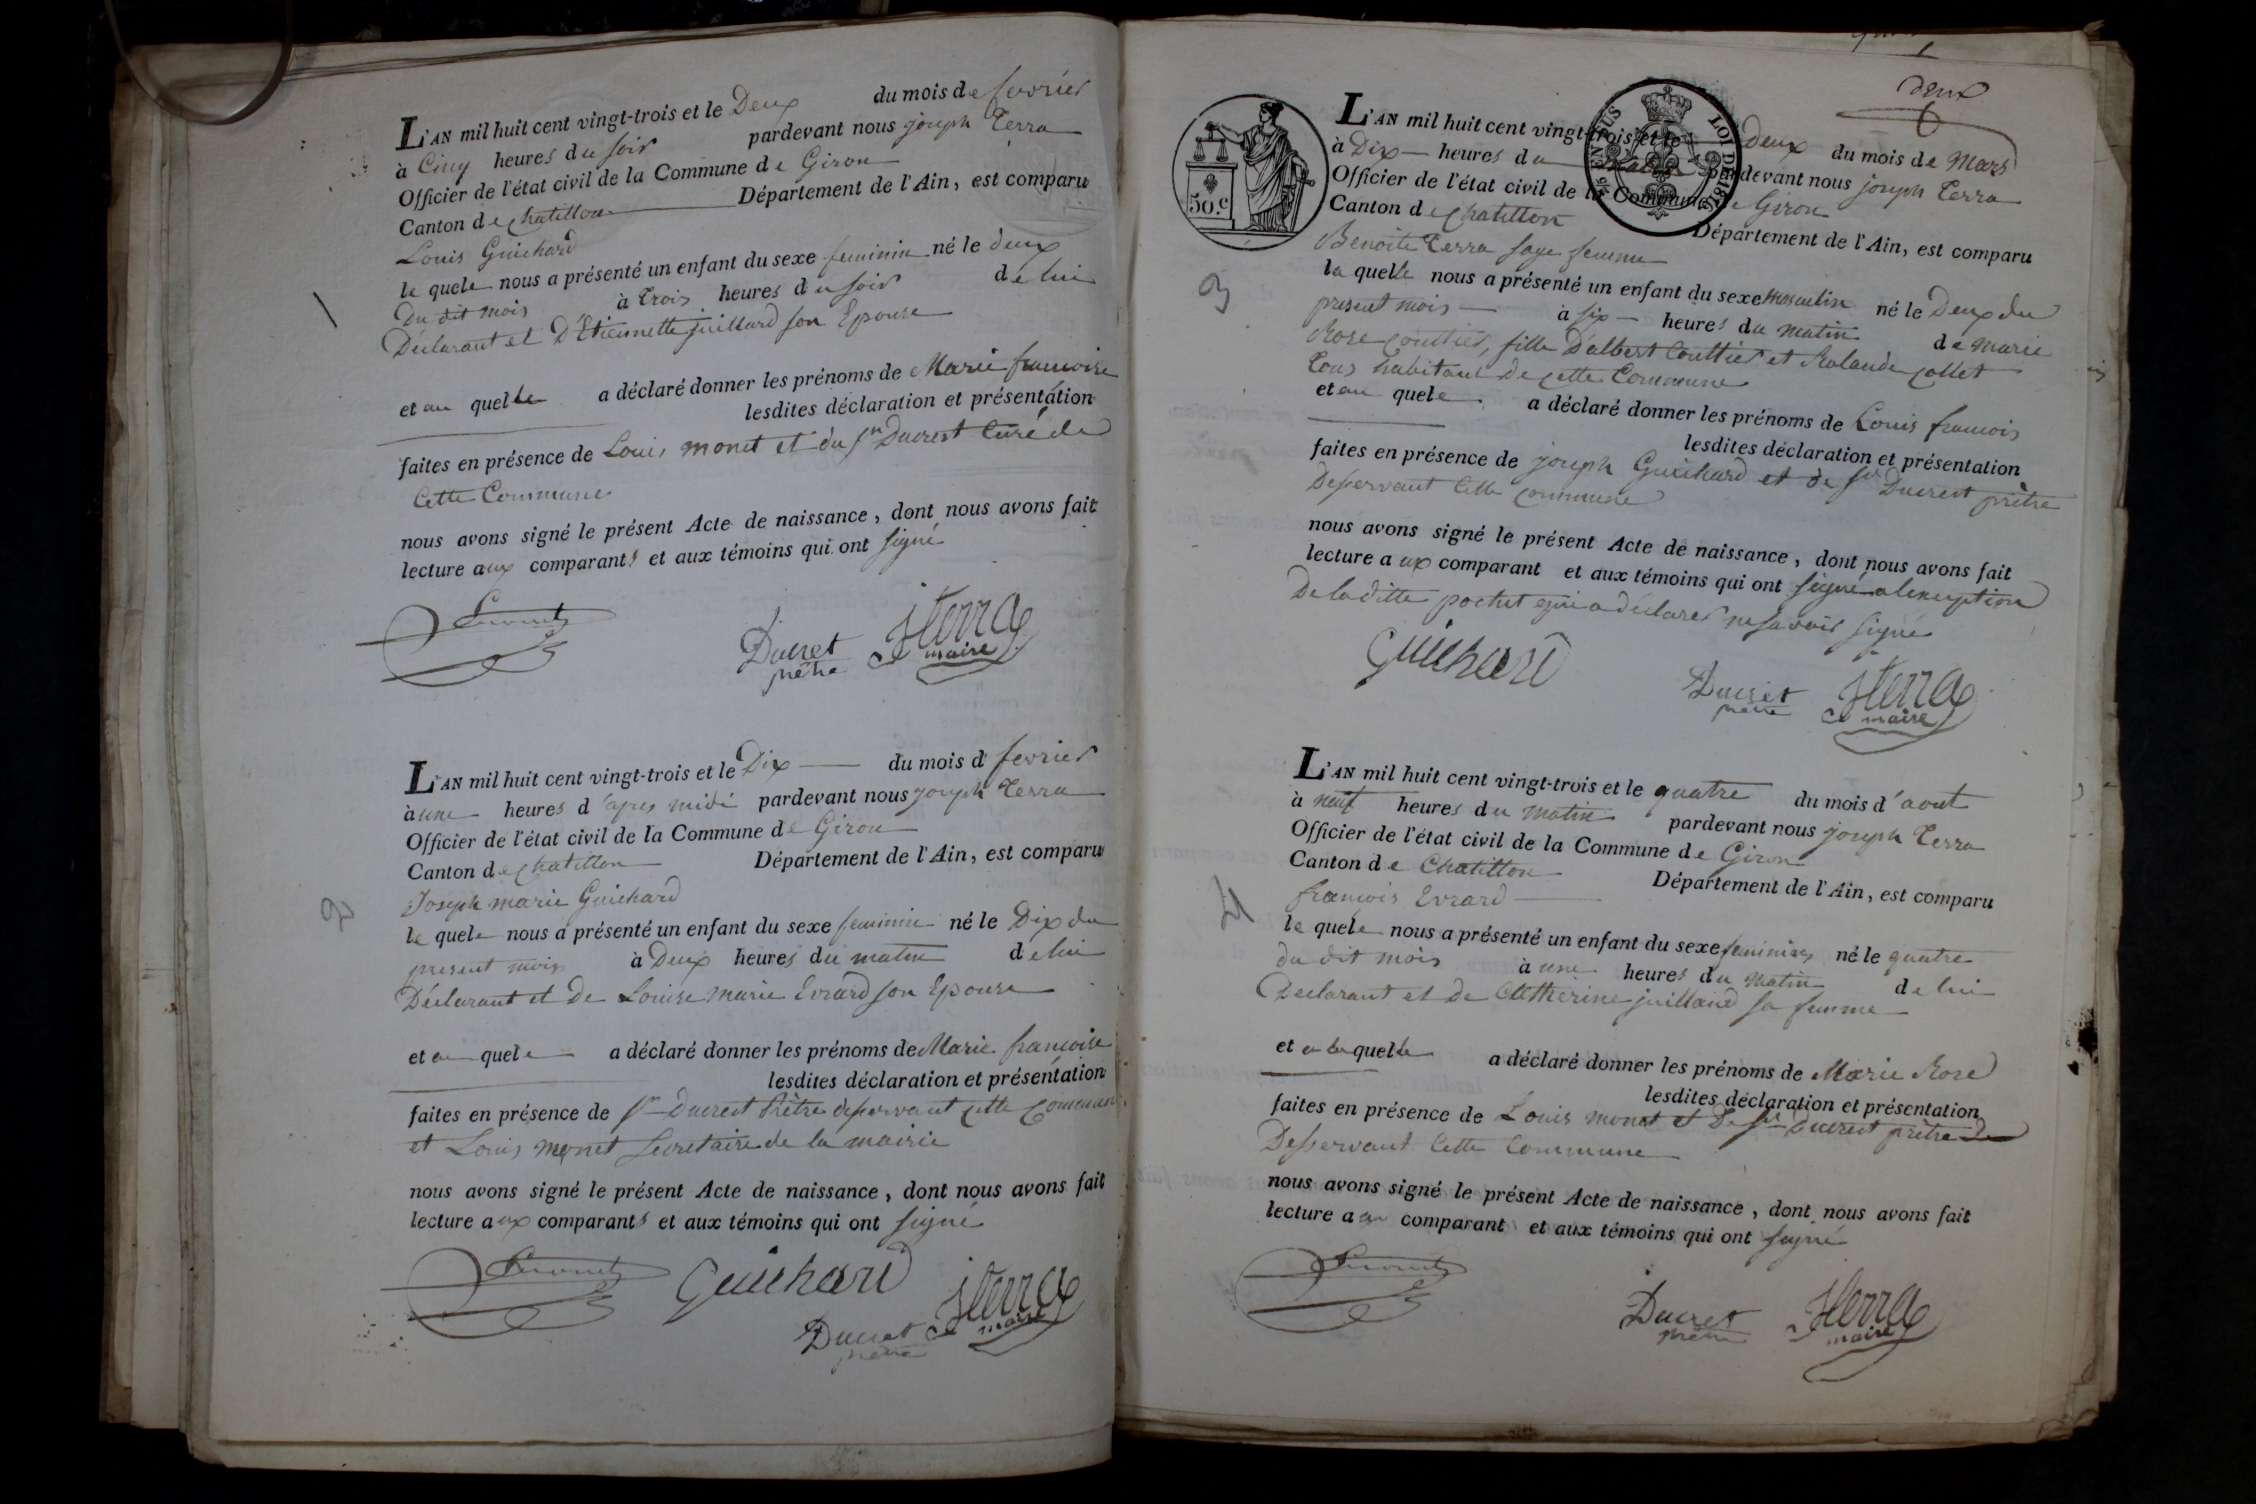 L'AN mil huit cent vingt-trois et le Deux du mois de fevrier
à Cinq heures du soir pardevant nous joseph Terra
Officier de l'état civil de la Commune de Giron
Canton de chatillon Département de l'Ain, est comparu
Louis Guichard
le quele nous a présenté un enfant du sexe feminin né le deux
du dit mois à trois heures du soir de lui
Déclarant et D'Etiennette juillard son Epouse
1
et au quelle a déclaré donner les prénoms de Marie francoise
lesdites déclaration et présentation
faites en présence de Louis monet et du Sr Ducrest Curé de
Cette Commune
nous avons signé le présent Acte de naissance, dont nous avons fait
lecture aux comparants et aux témoins qui ont signé
Ducret
prêtre
JTerra
maire
L'AN mil huit cent vingt-trois et le Dix du mois d fevrier
à une heures d'apres midi pardevant nous joseph Terra
Officier de l'état civil de la Commune de Giron
Canton de chatillon Département de l'Ain, est comparu
Joseph marie Guichard
2
le quele nous a présenté un enfant du sexe feminin né le Dix du
present mois à Deux heures du matin de lui
Déclarant et De Louise marie Evrard son Epouse
et au quele a déclaré donner les prénoms de Marie francoise
lesdites déclaration et présentation
faites en présence de Sr Ducrest Prêtre desservant cette Commune
et Louis monet Secretaire de la mairie
nous avons signé le présent Acte de naissance, dont nous avons fait
lecture aux comparants et aux témoins qui ont signé
Guichard
Ducret
prêtre
JTerra
maire
deux
50.c
LOI DE 1816
L'AN mil huit cent vingt-trois et le deux du mois de Mars
à Dix heures du matin pardevant nous joseph Terra
Officier de l'état civil de la Commune de Giron
Canton de chatillon Département de l'Ain, est comparu
Benoite Terra sage femme
3
la quelle nous a présenté un enfant du sexe masculin né le Deux du
present mois à six heures du matin de marie
Rose Couttier, fille D'albert Couttier et Rolande collet
tous habitant de cette Commune
et au quele a déclaré donner les prénoms de Louis francois
lesdites déclaration et présentation
faites en présence de joseph Guichard et de Sr Ducrest prêtre
Desservant Cette commune
nous avons signé le présent Acte de naissance, dont nous avons fait
lecture aux comparant et aux témoins qui ont signé a lexception
De laditte qui a déclarer ne savoir signé
Guichard
Ducret
prêtre
JTerra
maire
L'AN mil huit cent vingt-trois et le quatre du mois d'aout
à neuf heures du matin pardevant nous joseph Terra
Officier de l'état civil de la Commune de Giron
Canton de Chatillon Département de l'Ain, est comparu
francois Evrard
4
le quele nous a présenté un enfant du sexe feminin né le quatre
du dit mois à une heures du matin de lui
Déclarant et De Catherine juilland sa femme
et a la quelle a déclaré donner les prénoms de Marie Rose
lesdites déclaration et présentation
faites en présence de Louis monet et De Sr Ducrest prêtre
Desservant Cette Commune
nous avons signé le présent Acte de naissance, dont nous avons fait
lecture au comparant et aux témoins qui ont signé
Ducret
prêtre
JTerra
maire